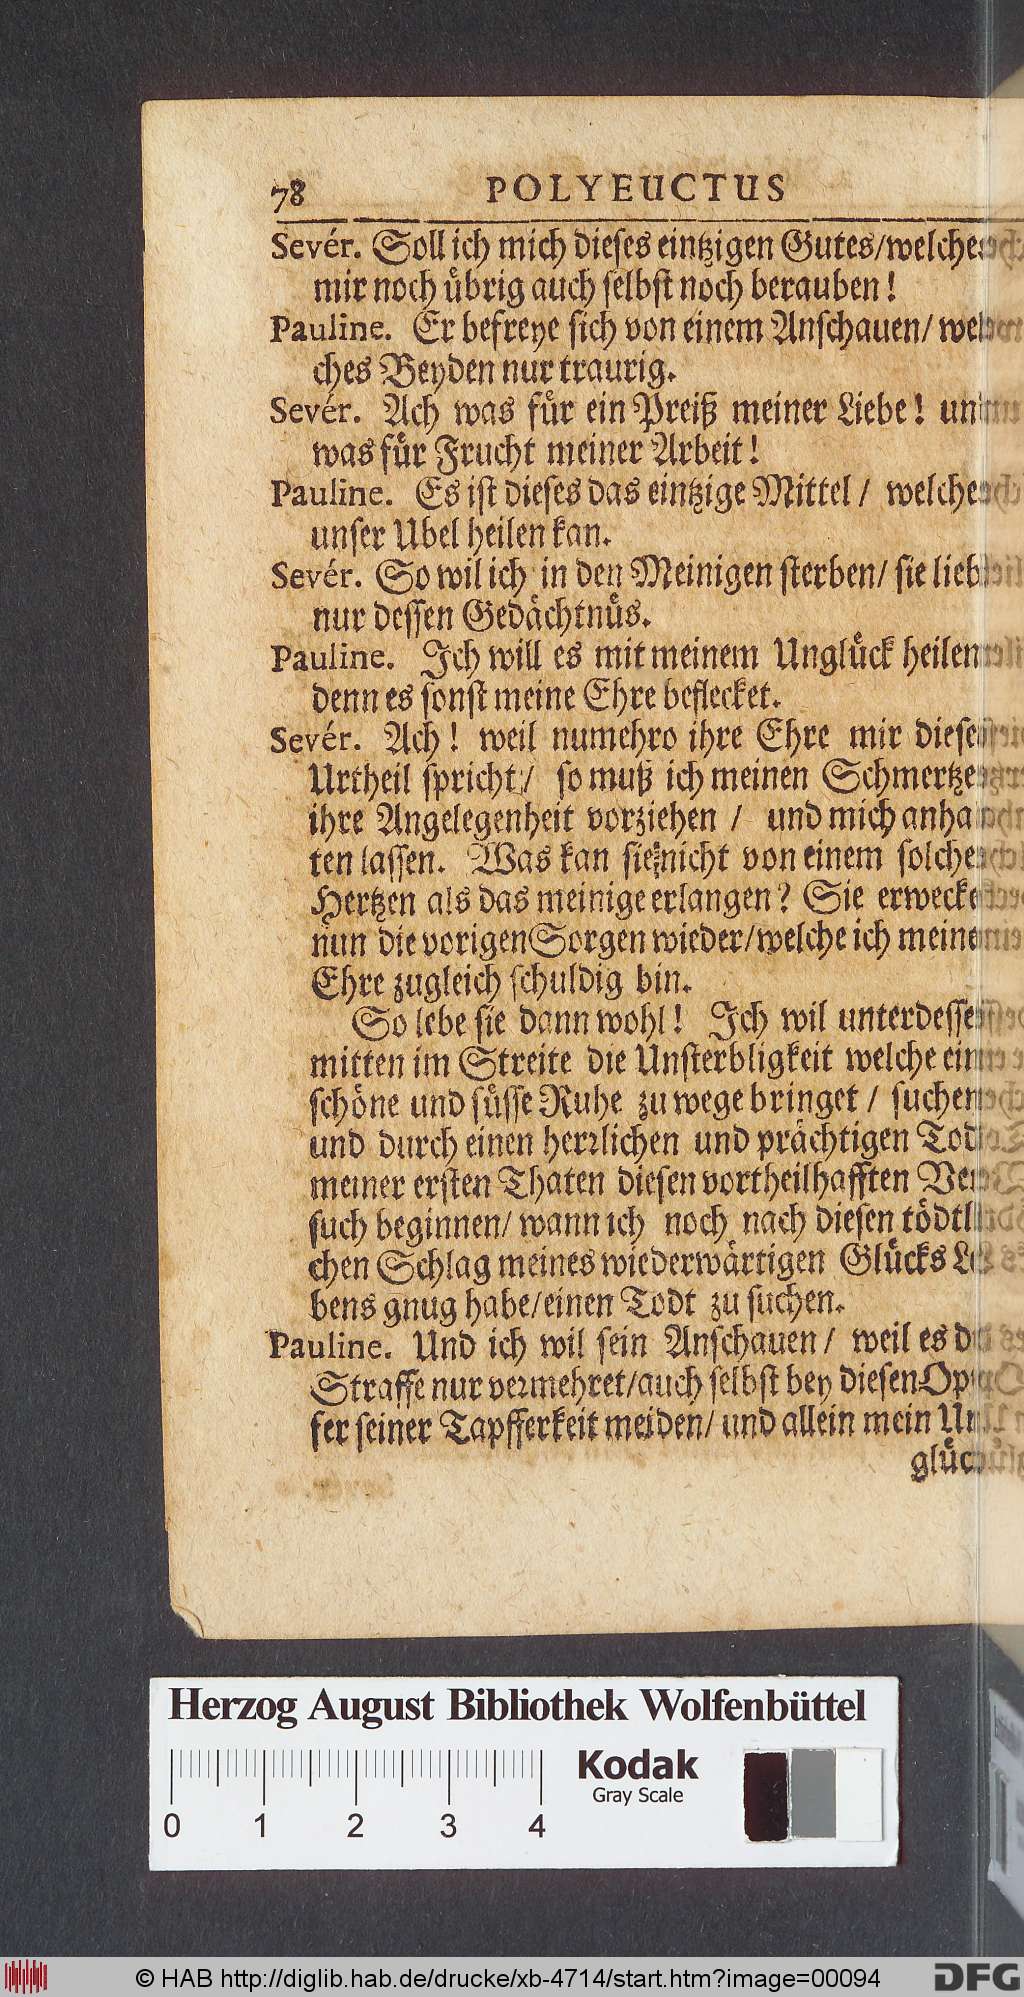 78 POLYEUCTUS
Sevér. Soll ich mich dieses eintzigen Gutes/welches
mir noch übrig auch selbst noch berauben!
Pauline. Er befreye sich von einem Anschauen/ wel-
ches Beyden nur traurig.
Sevér. Ach was für ein Preiß meiner Liebe! und
was für Frucht meiner Arbeit!
Pauline. Es ist dieses das eintzige Mittel / welches
unser Ubel heilen kan.
Sevér. So wil ich in den Meinigen sterben/ sie liebe
nur dessen Gedächtnüs.
Pauline. Ich will es mit meinem Unglück heilen
denn es sonst meine Ehre beflecket.
Sevér. Ach! weil numehro ihre Ehre mir dieses
Urtheil spricht/ so muß ich meinen Schmertzen
ihre Angelegenheit vorziehen / und mich anhal-
ten lassen. Was kan sie nicht von einem solchen
Hertzen als das meinige erlangen? Sie erwecket
nun die vorigen Sorgen wieder/welche ich meiner
Ehre zugleich schuldig bin.
So lebe sie dann wohl! Ich wil unterdessen
mitten im Streite die Unsterbligkeit welche eine
schöne und süsse Ruhe zu wege bringet / suchen
und durch einen herrlichen und prächtigen Tod
meiner ersten Thaten diesen vortheilhafften Ver-
such beginnen/ wann ich noch nach diesen tödtli-
chen Schlag meines wiederwärtigen Glücks Le-
bens gnug habe/einen Todt zu suchen.
Pauline. Und ich wil sein Anschauen/ weil es die
Straffe nur vermehret/auch selbst bey diesen Opf-
fer seiner Tapfferkeit meiden/ und allein mein Un-
glück
Herzog August Bibliothek Wolfenbüttel
Kodak
Gray Scale
0 1 2 3 4
© HAB http://diglib.hab.de/drucke/xb-4714/start.htm?image=00094
DFG